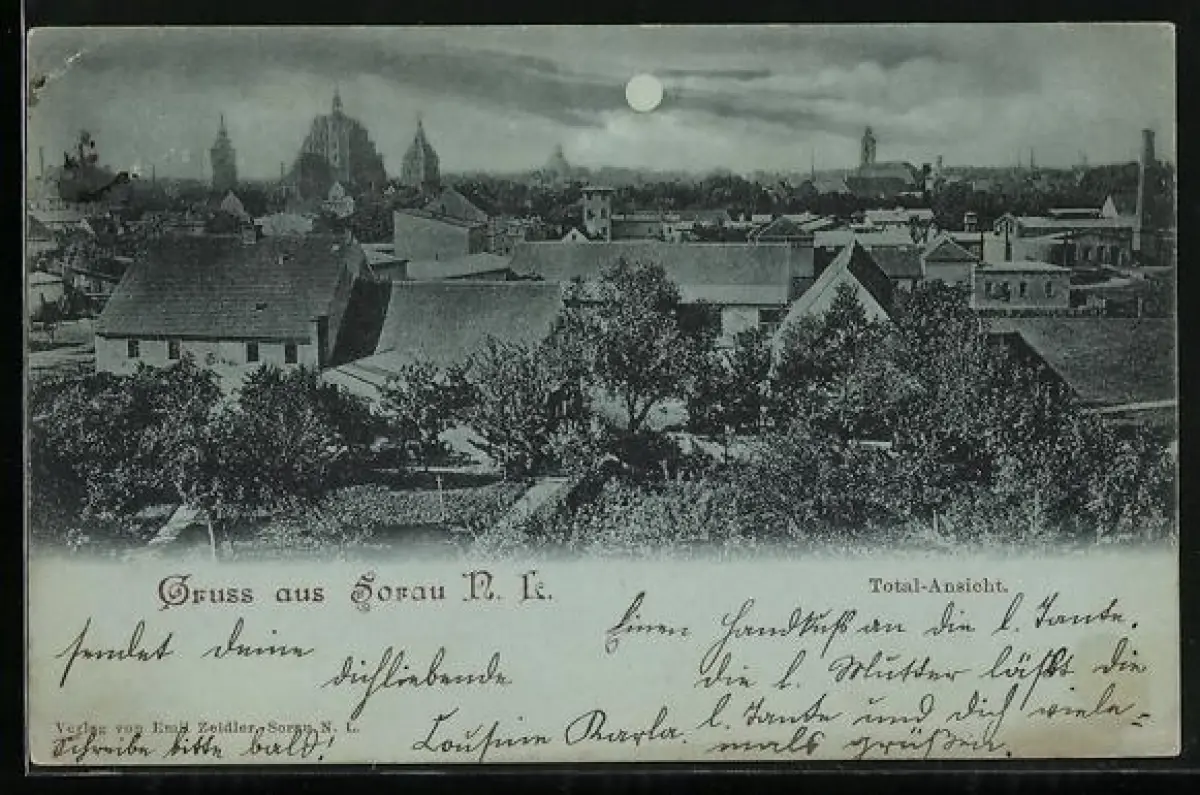 Gruss aus Sorau N. L.
Total-Ansicht.
sendet deine
dichliebende
Cousine Karla.
Schreibe bitte bald!
Einen Handkuß an die l. Tante.
die l. Mutter läßt die
l. Tante und dich viele=
mals grüßen.
Verlag von Emil Zeidler, Sorau N. L.